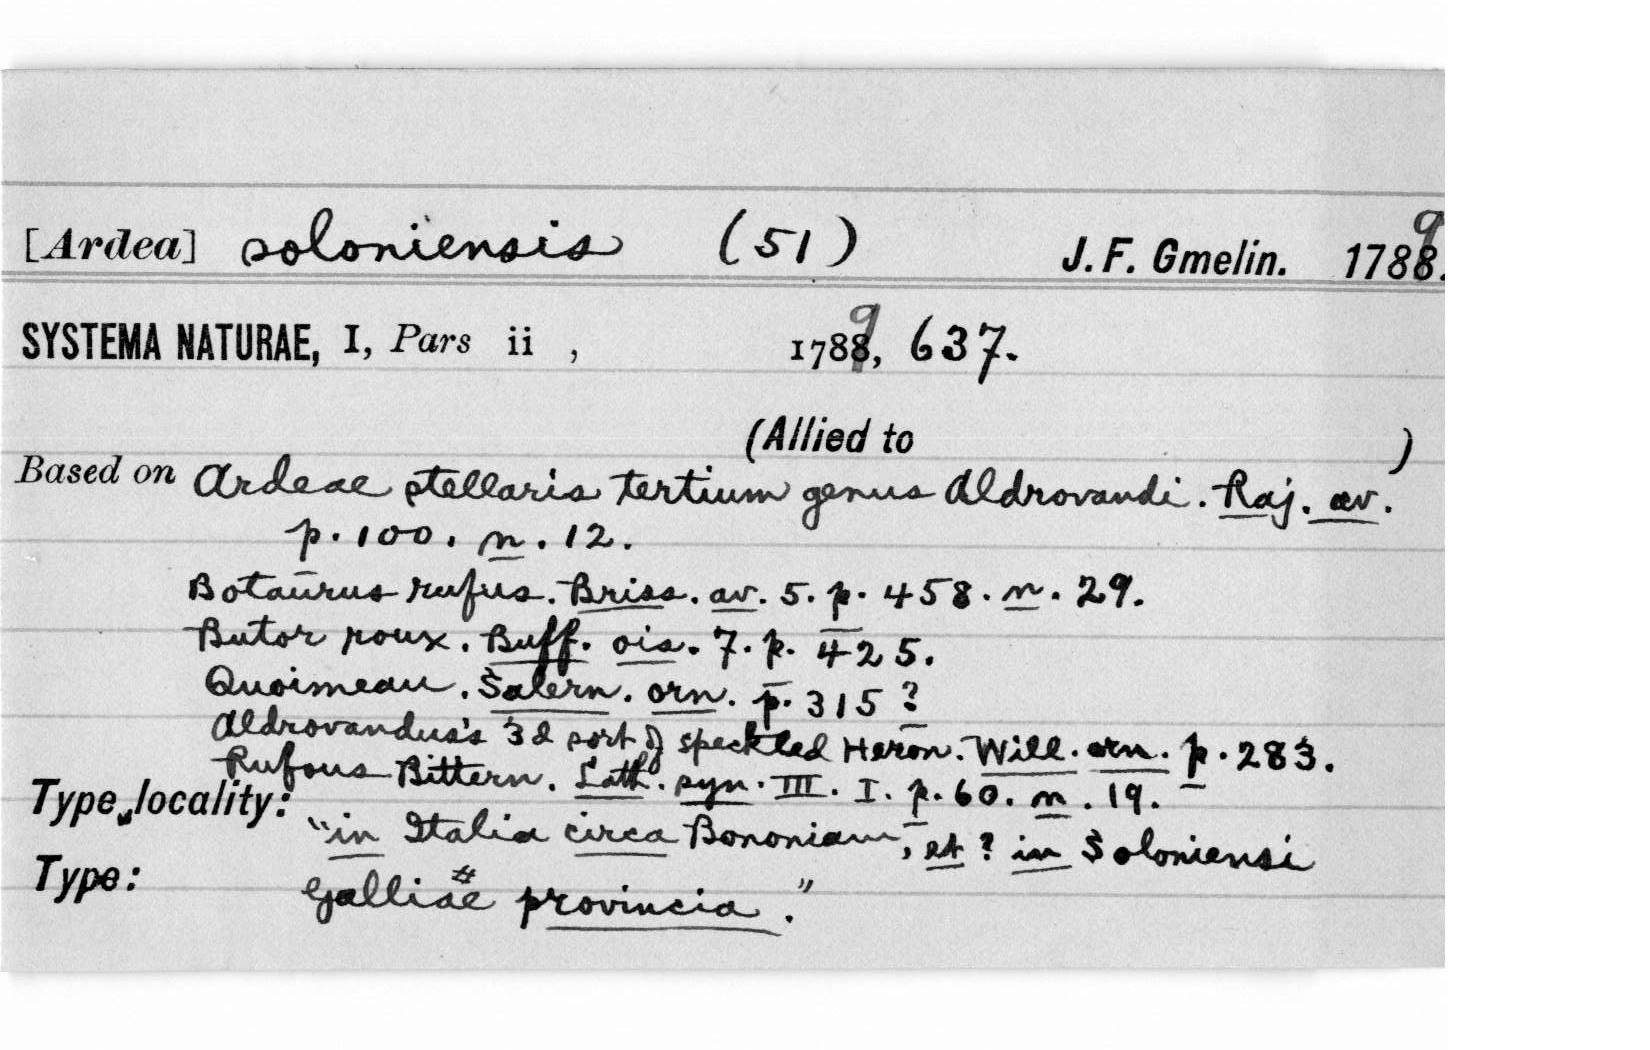 [Ardea] soloniensis (51) J. F. Gmelin. 1789.
SYSTEMA NATURAE, I, Pars ii , 1789, 637.
(Allied to )
Based on Ardeae stellaris tertium genus Aldrovandi. Raj. av.
p. 100. n. 12.
Botaurus rufus. Briss. av. 5. p. 458. n. 29.
Butor roux. Buff. ois. 7. p. 425.
Quoimeau. Salern. orn. p. 315 ?
Aldrovandus's 3d sort of speckled Heron. Will. orn. p. 283.
Rufous Bittern. Lath. syn. III. I. p. 60. n. 19.
Type locality: "in Italia circa Bononiam, et ? in Soloniensi
Type: Galliae provincia."